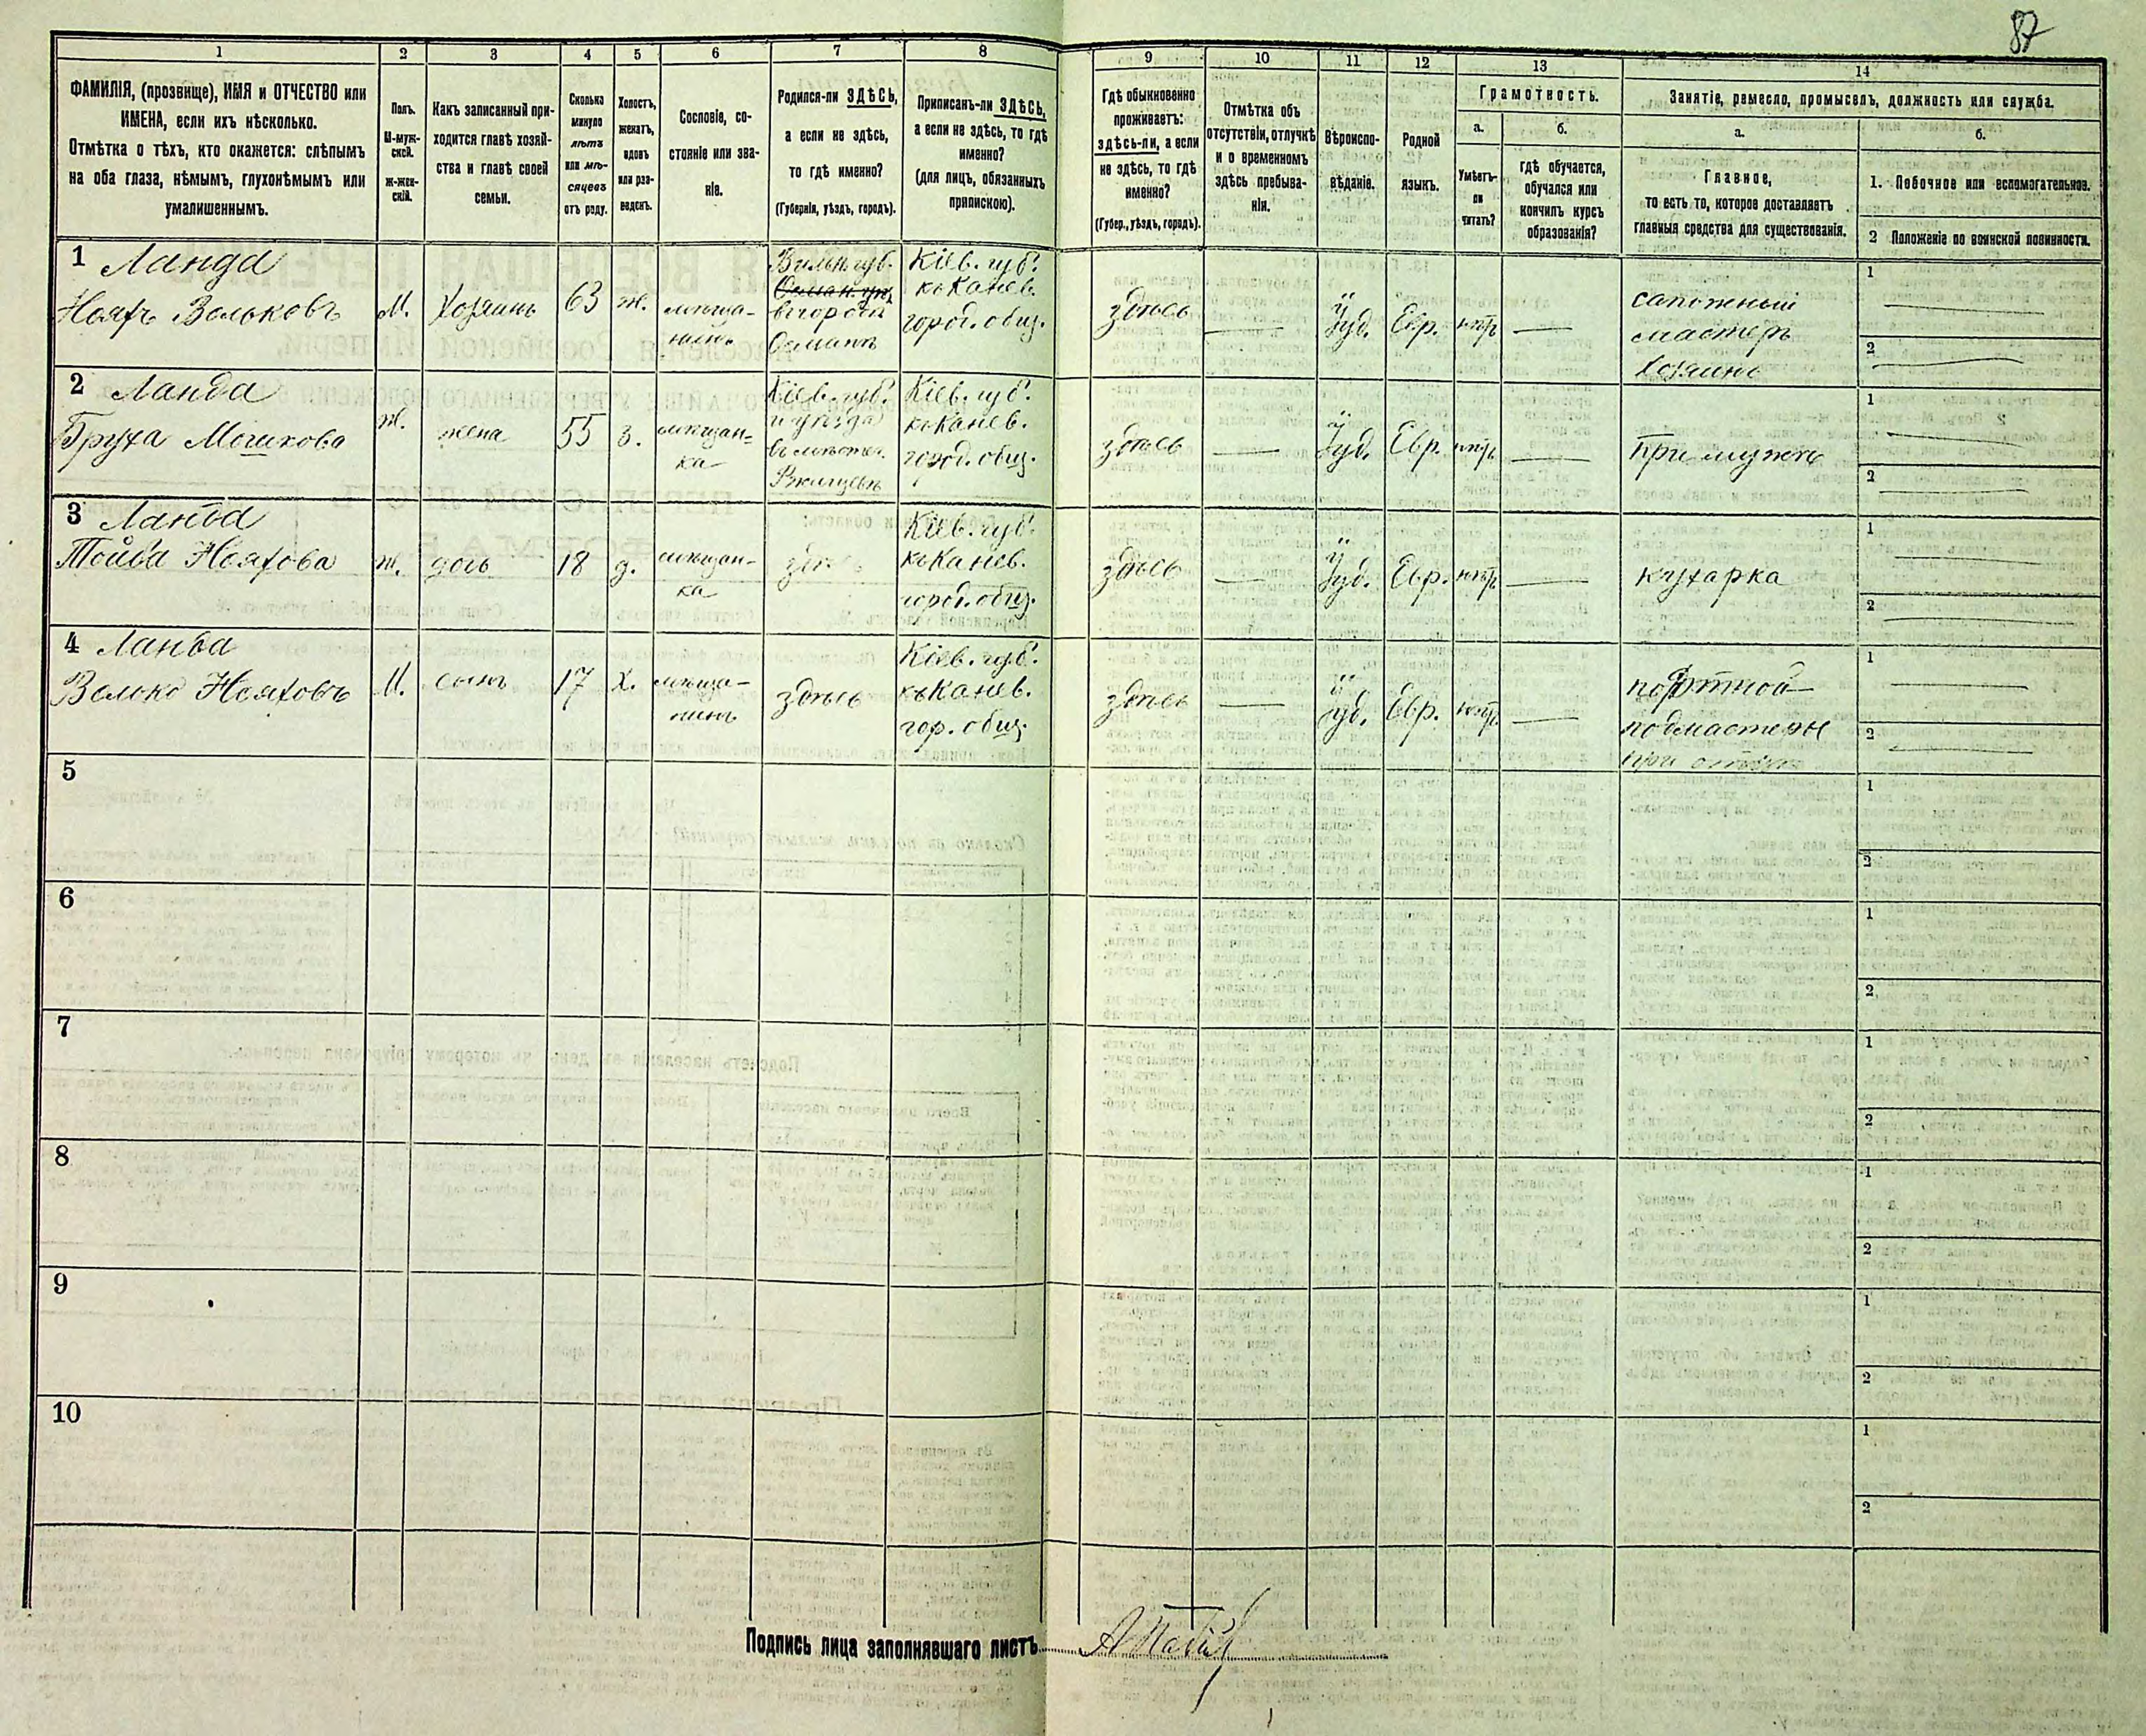 87
1 2 3 4 5 6 7 8 9 10 11 12 13 14
ФАМИЛІЯ, (прозвище), ИМЯ и ОТЧЕСТВО или
ИМЕНА, если ихъ нѣсколько.
Отмѣтка о тѣхъ, кто окажется: слѣпымъ
на оба глаза, нѣмымъ, глухонѣмымъ или
умалишеннымъ.
Полъ.
М-муж-
ской.
Ж-жен-
скій.
Какъ записанный при-
ходится главѣ хозяй-
ства и главѣ своей
семьи.
Сколько
минуло
лѣтъ
или мѣ-
сяцевъ
отъ роду.
Холостъ,
женатъ,
вдовъ
или раз-
веденъ.
Сословіе, со-
стояніе или зва-
ніе.
Родился-ли ЗДѢСЬ,
а если не здѣсь,
то гдѣ именно?
(Губернія, уѣздъ, городъ).
Приписанъ-ли ЗДѢСЬ,
а если не здѣсь, то гдѣ
именно?
(для лицъ, обязанныхъ
припискою).
Гдѣ обыкновенно
проживаетъ:
здѣсь-ли, а если
не здѣсь, то гдѣ
именно?
(Губер., уѣздъ, городъ).
Отмѣтка объ
отсутствіи, отлучкѣ
и о временномъ
здѣсь пребыва-
ніи.
Вѣроиспо-
вѣданіе.
Родной
языкъ.
Грамотность.
а.
Умѣетъ-
ли
читать?
б.
гдѣ обучается,
обучался или
кончилъ курсъ
образованія?
Занятіе, ремесло, промыселъ, должность или служба.
а.
Главное,
то есть то, которое доставляетъ
главныя средства для существованія.
б.
1. Побочное или вспомогательное.
2 Положеніе по воинской повинности.
1 Ланда
Нояхъ Вольковъ
М.
Хозяинъ
63
ж.
мѣща-
нинъ
Вильн. губ.
въ городѣ
Кіев. губ.
къ Канев.
город. общ.
здѣсь
Іуд.
Евр.
нѣтъ
сапожный
мастеръ
хозяинъ
1
2
2 Ланда
Бруха Мошкова
ж.
жена
55
з.
мѣщан-
ка
Кіев. губ.
и уѣзда
въ мѣстеч.
Ржищевѣ
Кіев. губ.
къ Канев.
город. общ.
здѣсь
Іуд.
Евр.
нѣтъ
при мужѣ
1
2
3 Ланда
Тойба Нояхова
ж.
дочь
18
д.
мѣщан-
ка
здѣсь
Кіев. губ.
къ Канев.
город. общ.
здѣсь
Іуд.
Евр.
нѣтъ
кухарка
1
2
4 Ланда
Волько Нояховъ
М.
сынъ
17
х.
мѣща-
нинъ
здѣсь
Кіев. губ.
къ Канев.
гор. общ.
здѣсь
Іуд.
Евр.
нѣтъ
портной
подмастерье
при отцѣ
1
2
5
1
2
6
1
2
7
1
2
8
1
2
9
1
2
10
1
2
Подпись лица заполнявшаго листъ